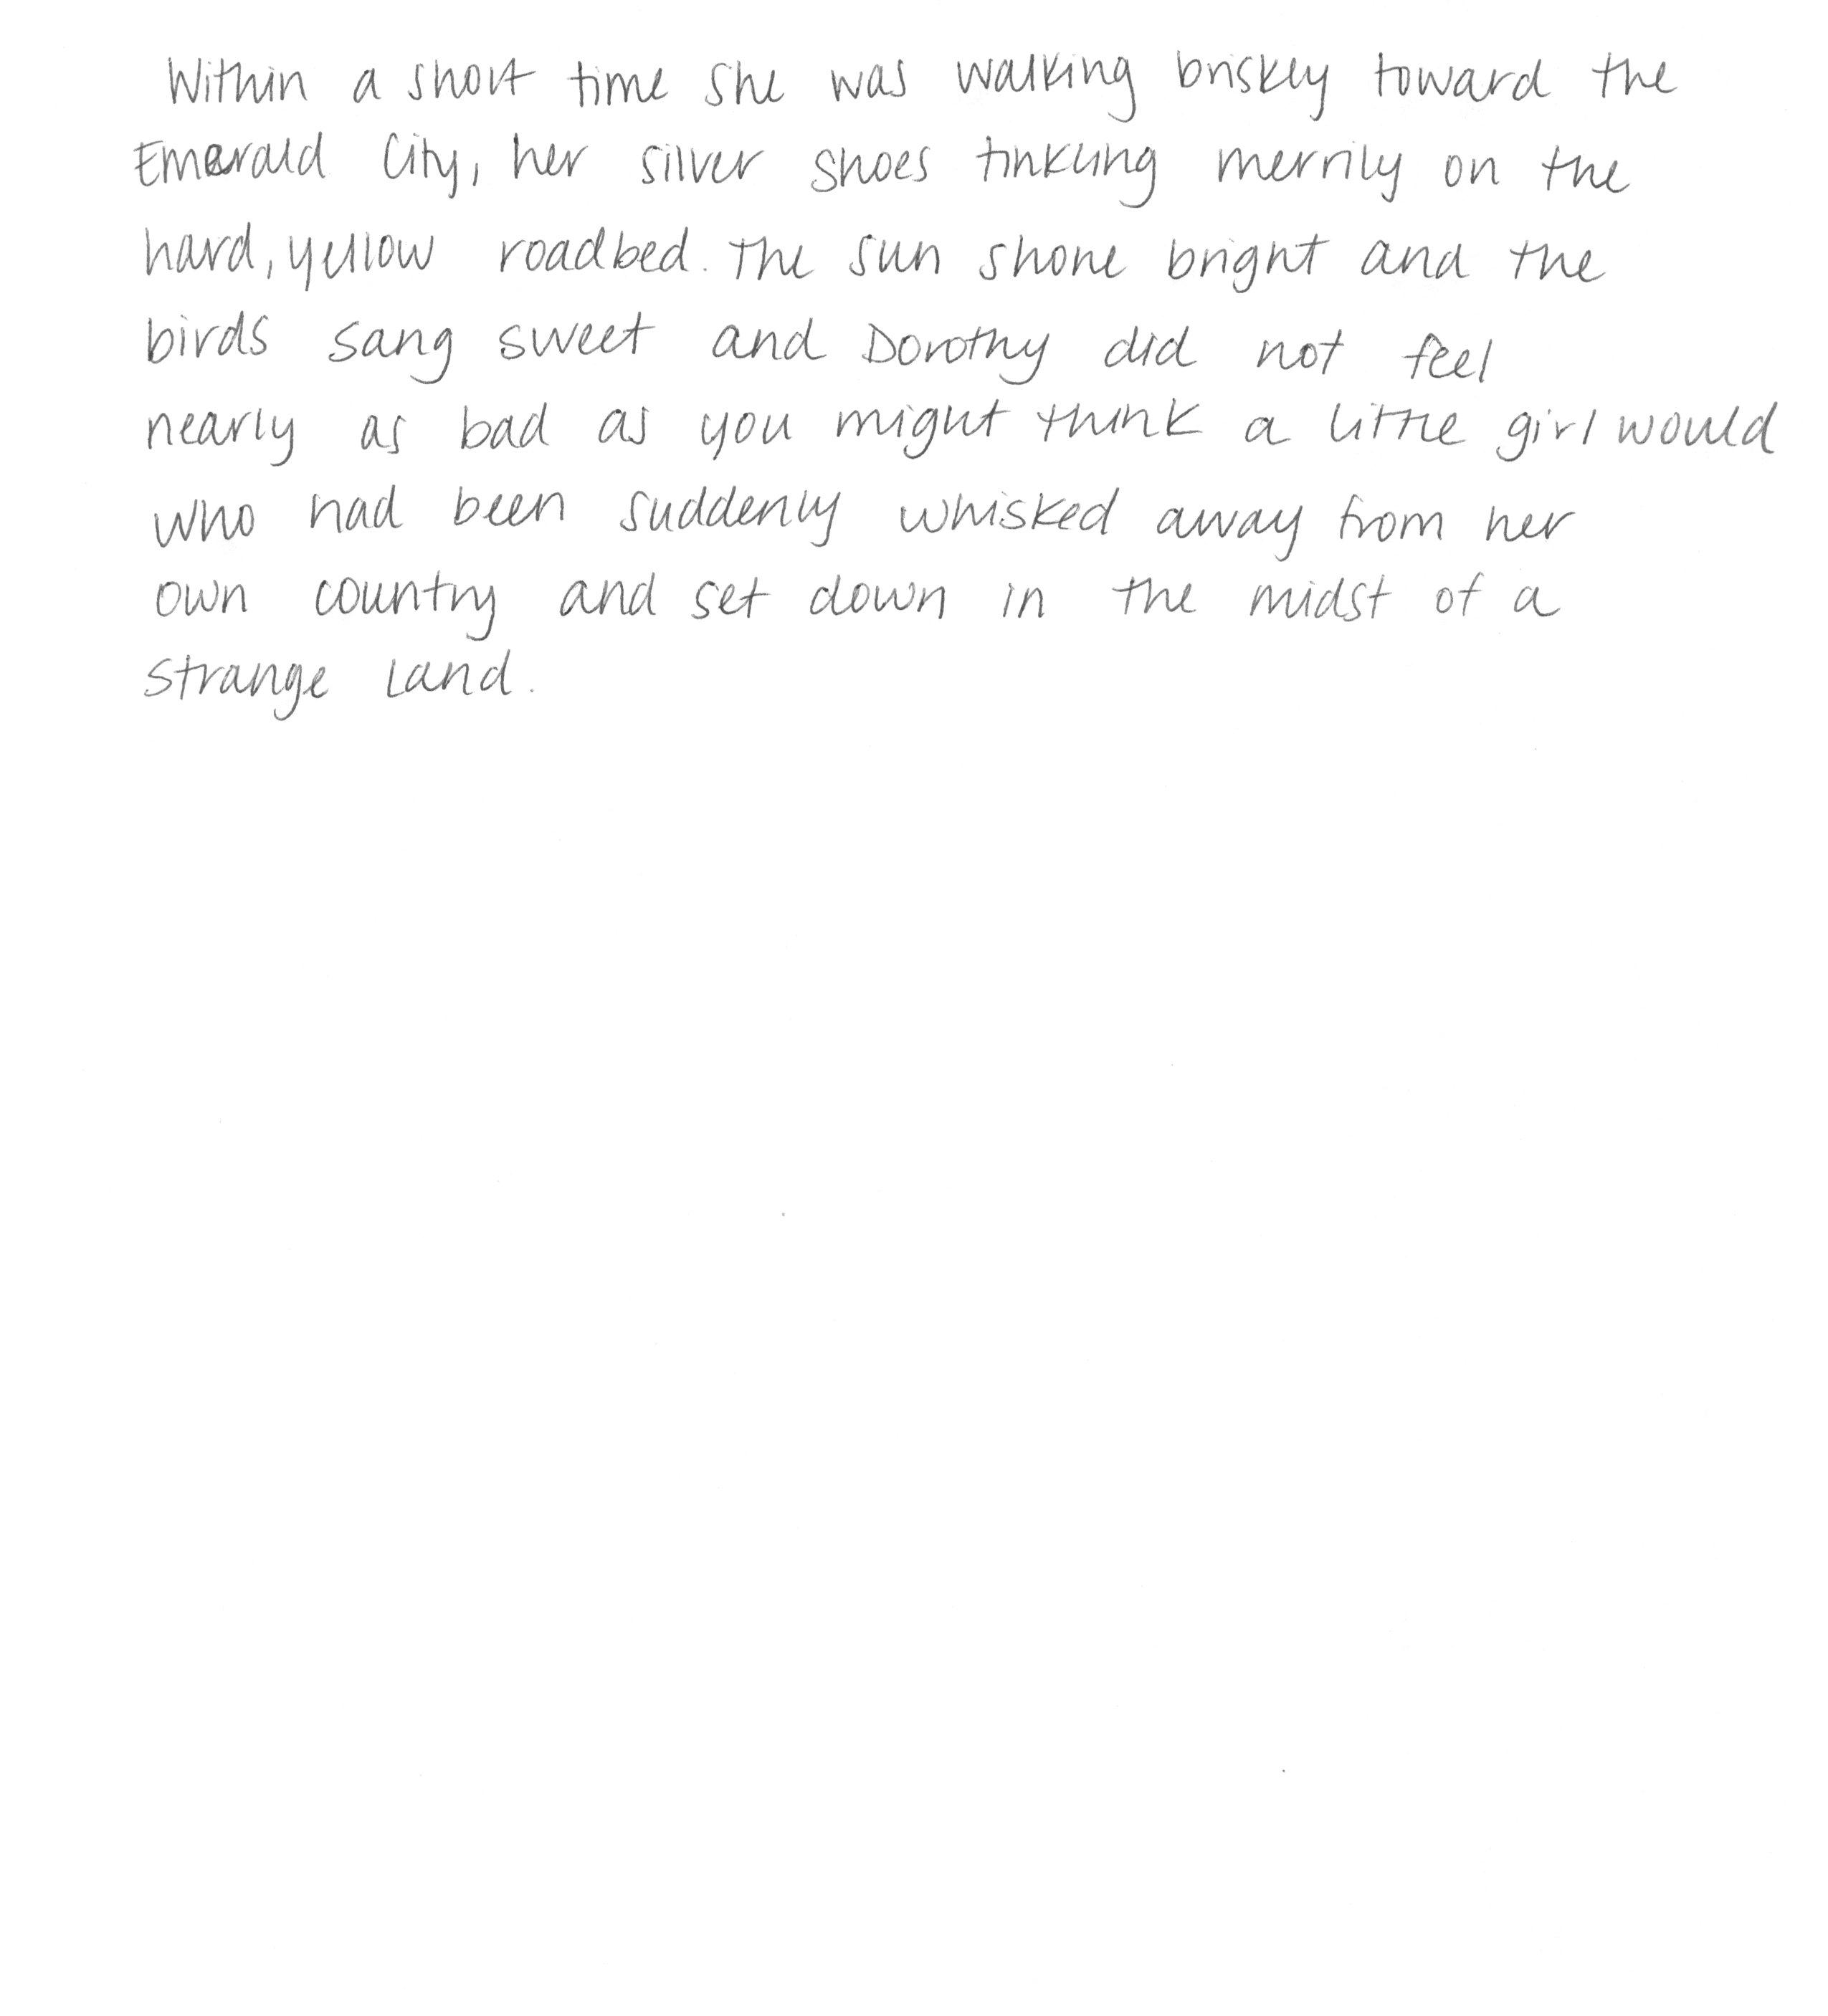 Within a short time she was walking briskly toward the
Emerald City, her silver shoes tinkling merrily on the
hard, yellow roadbed. The sun shone bright and the
birds sang sweet and Dorothy did not feel
nearly as bad as you might think a little girl would
who had been suddenly whisked away from her
own country and set down in the midst of a
strange land.